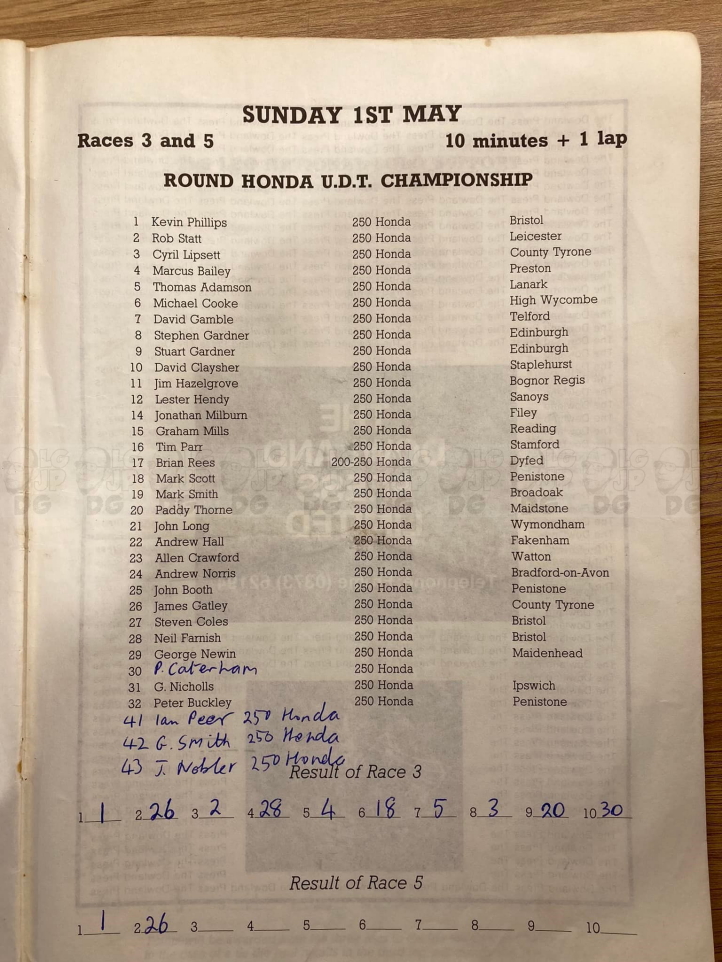 SUNDAY 1ST MAY
Races 3 and 5 10 minutes + 1 lap
ROUND HONDA U.D.T. CHAMPIONSHIP
1 Kevin Phillips 250 Honda Bristol
2 Rob Statt 250 Honda Leicester
3 Cyril Lipsett 250 Honda County Tyrone
4 Marcus Bailey 250 Honda Preston
5 Thomas Adamson 250 Honda Lanark
6 Michael Cooke 250 Honda High Wycombe
7 David Gamble 250 Honda Telford
8 Stephen Gardner 250 Honda Edinburgh
9 Stuart Gardner 250 Honda Edinburgh
10 David Claysher 250 Honda Staplehurst
11 Jim Hazelgrove 250 Honda Bognor Regis
12 Lester Hendy 250 Honda Sanoys
14 Jonathan Milburn 250 Honda Filey
15 Graham Mills 250 Honda Reading
16 Tim Parr 250 Honda Stamford
17 Brian Rees 200-250 Honda Dyfed
18 Mark Scott 250 Honda Penistone
19 Mark Smith 250 Honda Broadoak
20 Paddy Thorne 250 Honda Maidstone
21 John Long 250 Honda Wymondham
22 Andrew Hall 250 Honda Fakenham
23 Allen Crawford 250 Honda Watton
24 Andrew Norris 250 Honda Bradford-on-Avon
25 John Booth 250 Honda Penistone
26 James Gatley 250 Honda County Tyrone
27 Steven Coles 250 Honda Bristol
28 Neil Farnish 250 Honda Bristol
29 George Newin 250 Honda Maidenhead
30 P. Caterham 250 Honda
31 G. Nicholls 250 Honda Ipswich
32 Peter Buckley 250 Honda Penistone
41 Ian Peer 250 Honda
42 G. Smith 250 Honda
43 J. Nobler 250 Honda
Result of Race 3
1 1 2 26 3 2 4 28 5 4 6 18 7 5 8 3 9 20 10 30
Result of Race 5
1 1 2 26 3 4 5 6 7 8 9 10